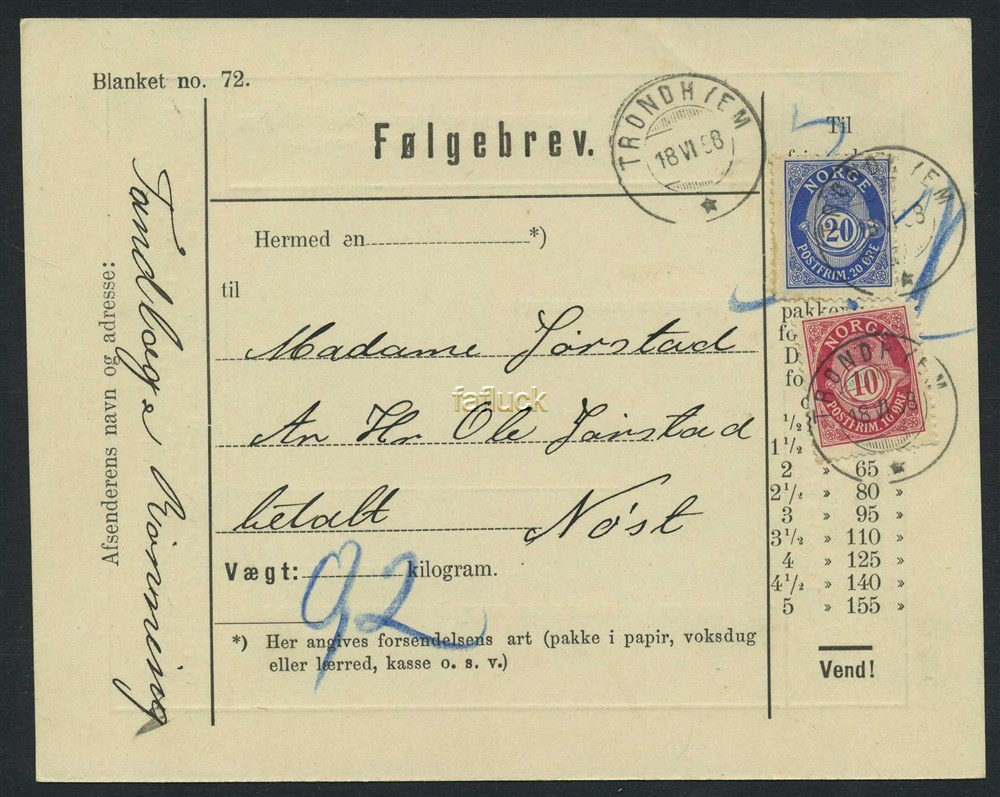 Blanket no. 72.
Følgebrev.
Hermed en *)
til
Madame Jørstad
An Hr Ole Jørstad
betalt Nøst
Vægt: kilogram.
92
*) Her angives forsendelsens art (pakke i papir, voksdug
eller lærred, kasse o. s. v.)
Afsenderens navn og adresse:
TRONDHJEM
18 VI 98
Til
NORGE
20
POSTFRIM. 20 ØRE
TRONDHJEM
pakker
fo
D
fo
NORGE
10
POSTFRIM. 10 ØRE
TRONDHJEM
1/2
1 1/2 »
2 » 65 »
2 1/2 » 80 »
3 » 95 »
3 1/2 » 110 »
4 » 125 »
4 1/2 » 140 »
5 » 155 »
Vend!
fafluck